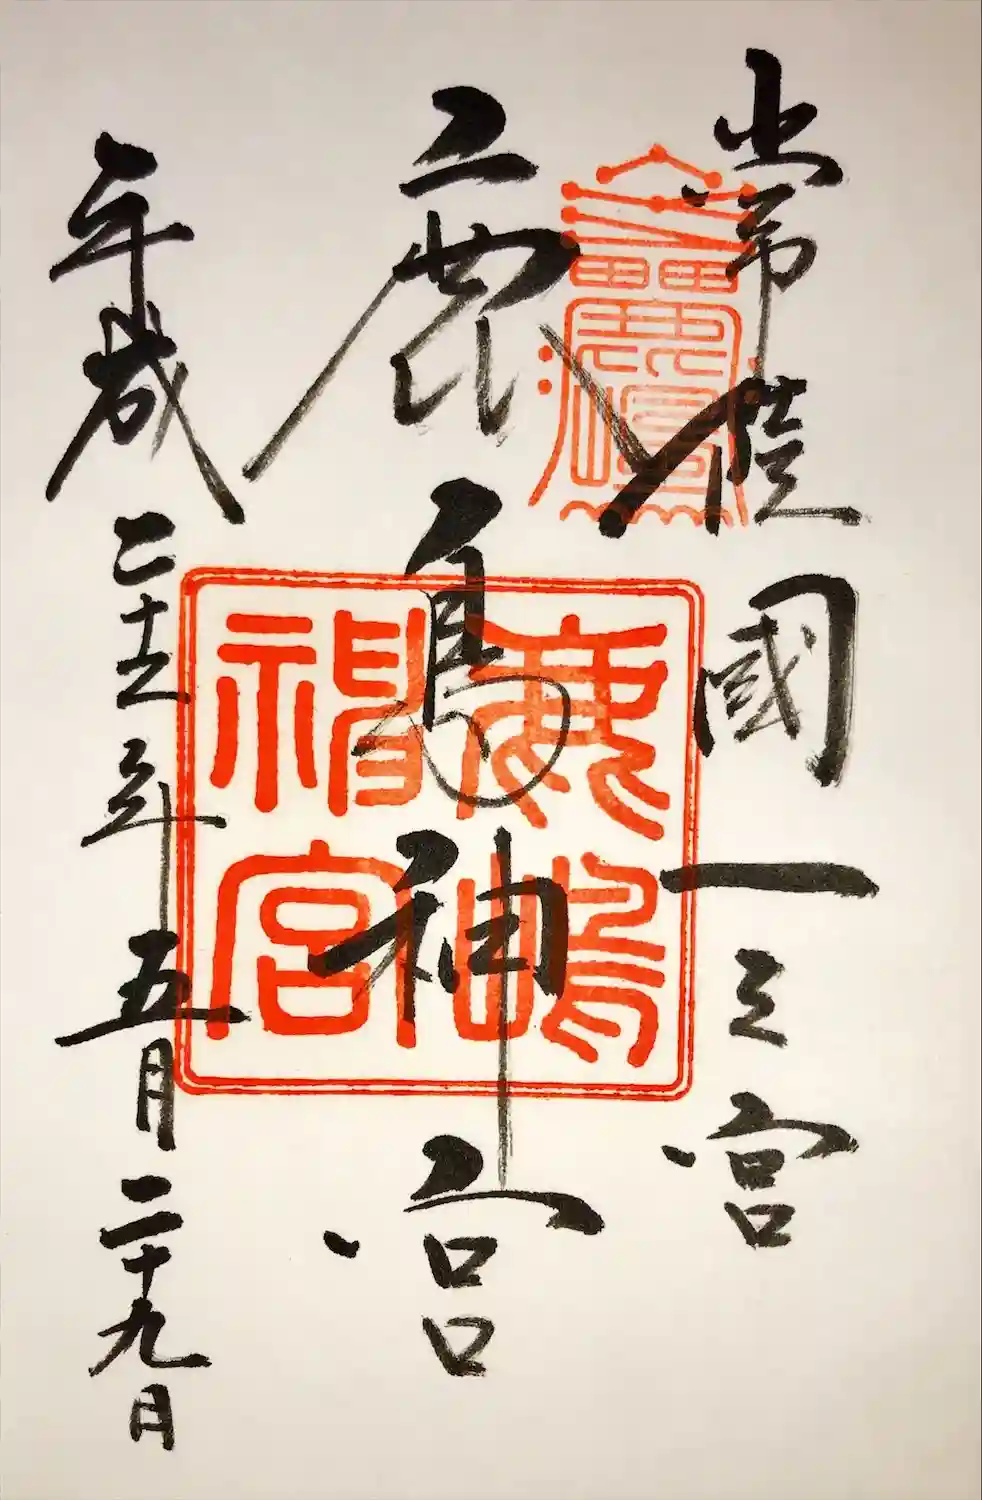 常陸國一之宮
鹿島神宮
平成二十五年五月二十九日
鹿嶋
神宮